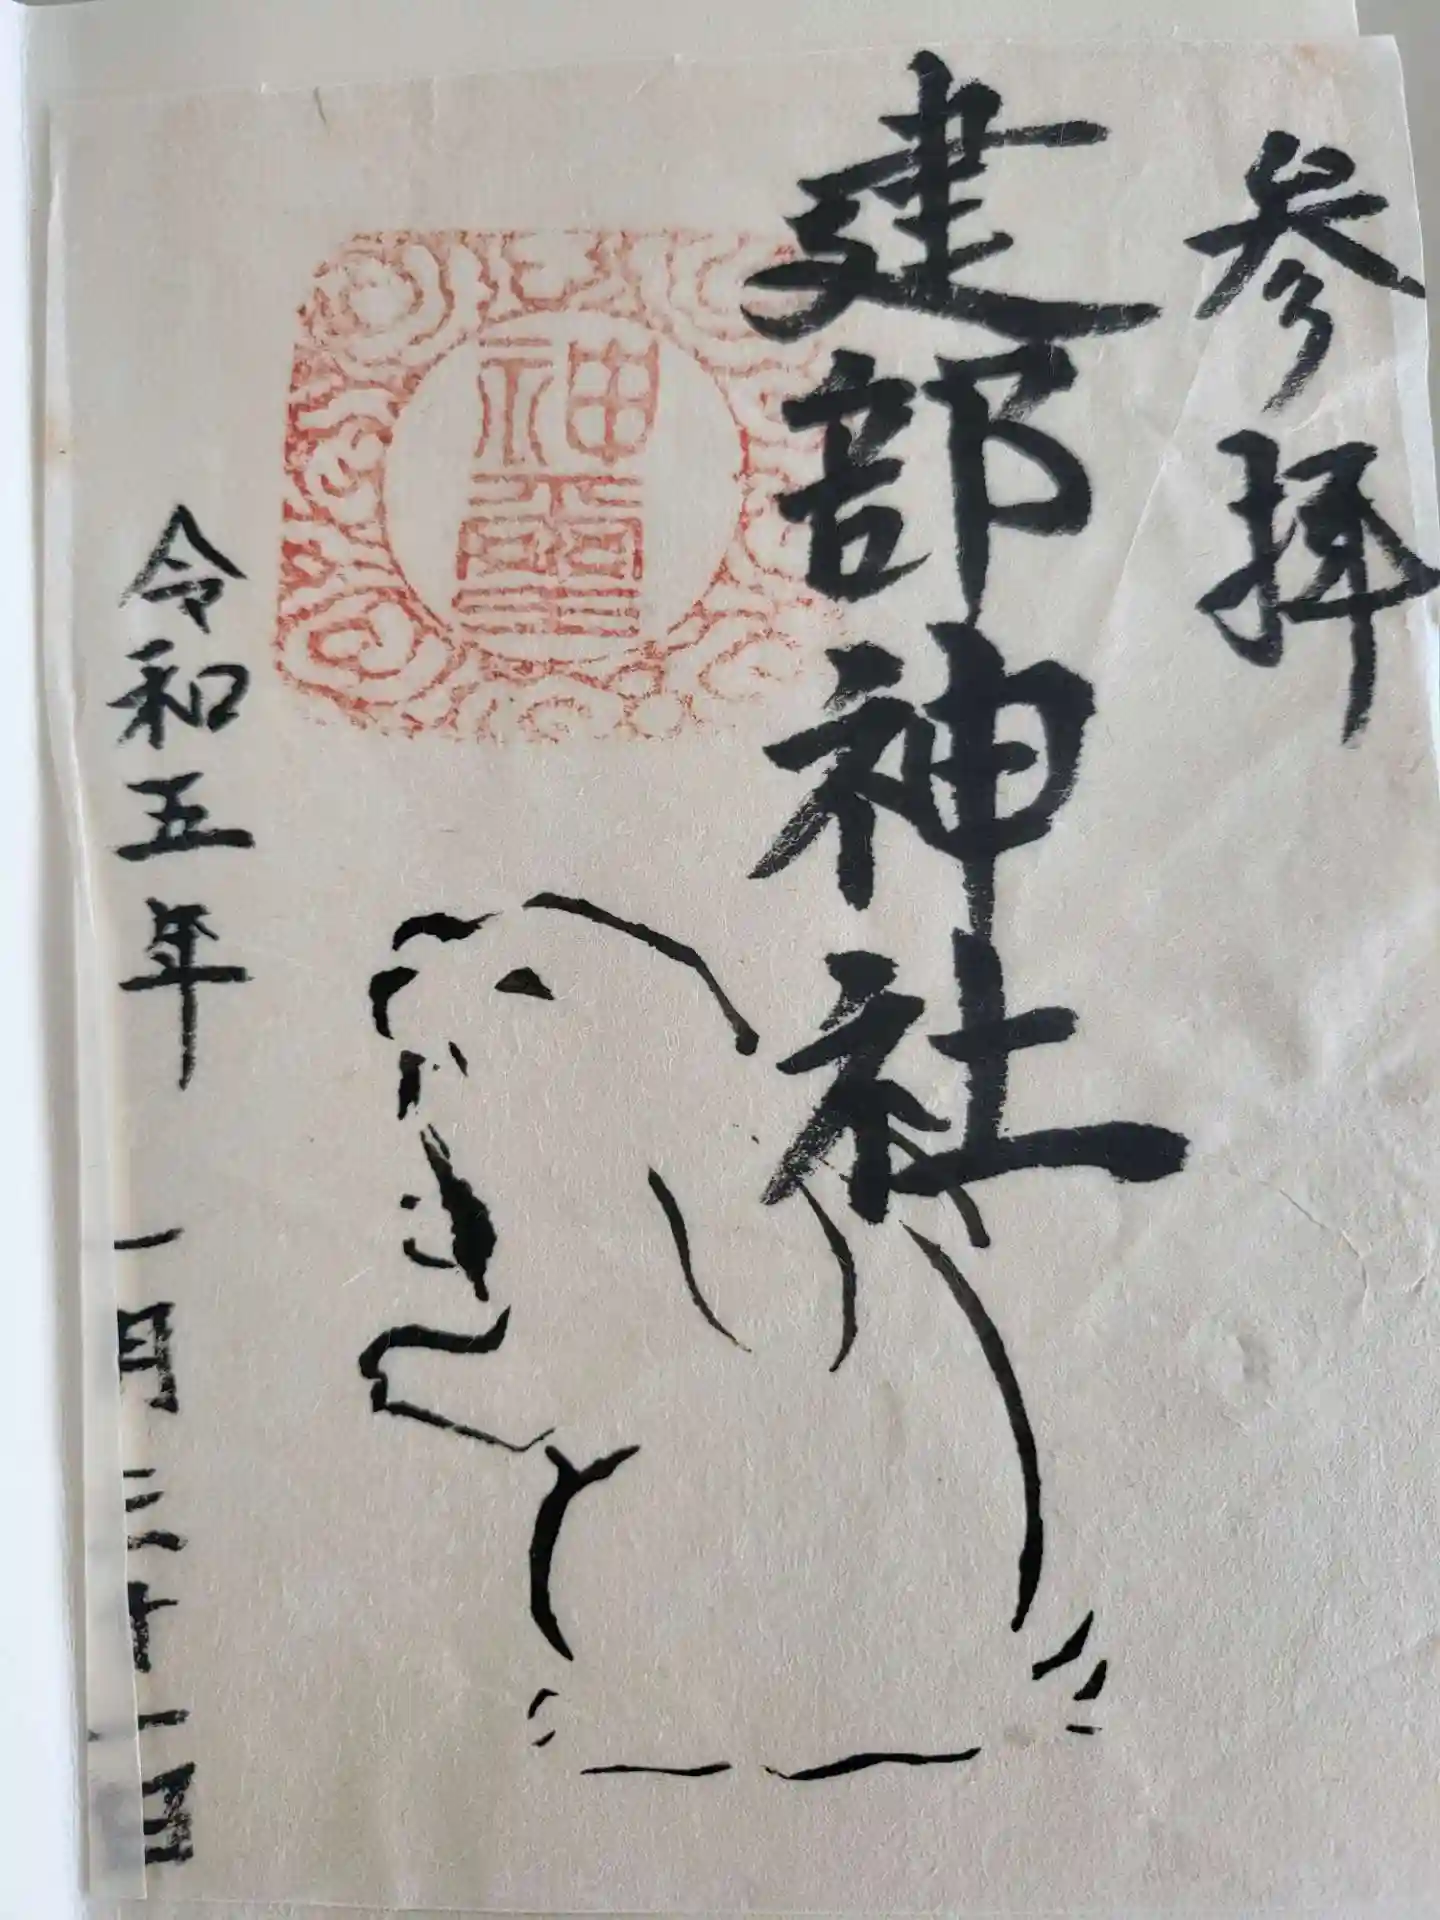 参拝
建部神社
神璽
令和五年 一月三十一日